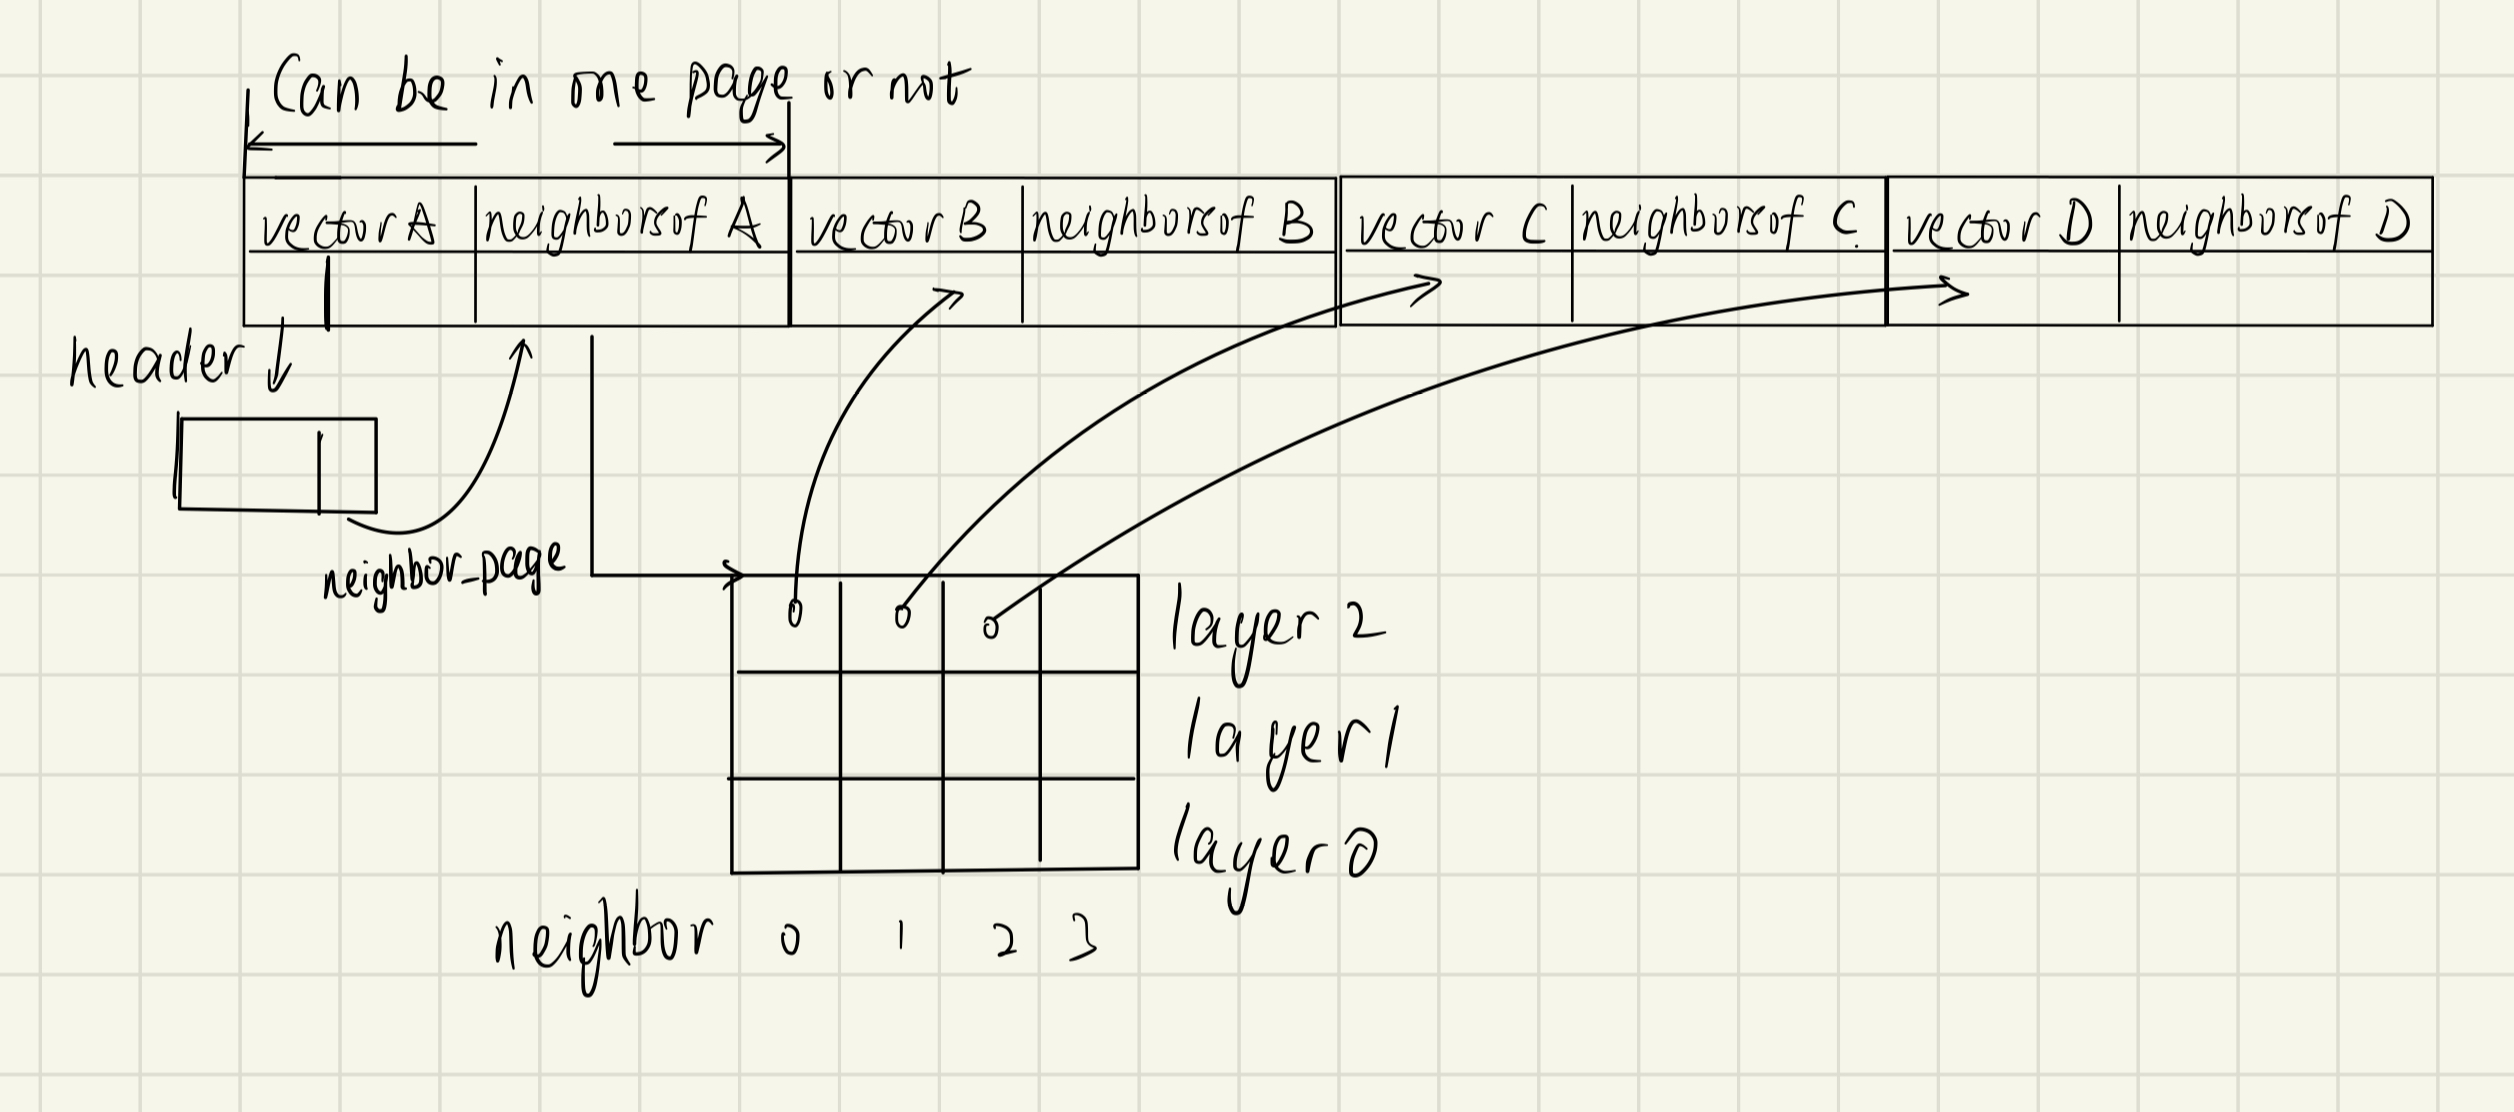 Can be in one page or not
vector A neighbors of A vector B neighbors of B vector C neighbors of C. vector D neighbors of D
header
neighbor_page
layer 2
layer 1
layer 0
neighbor 0 1 2 3